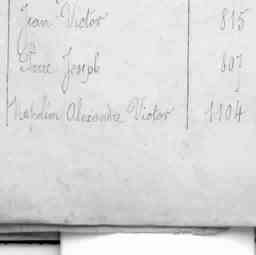 Jean Victor 815
Pierre Joseph 807
Napoléon Alexandre Victor 1104